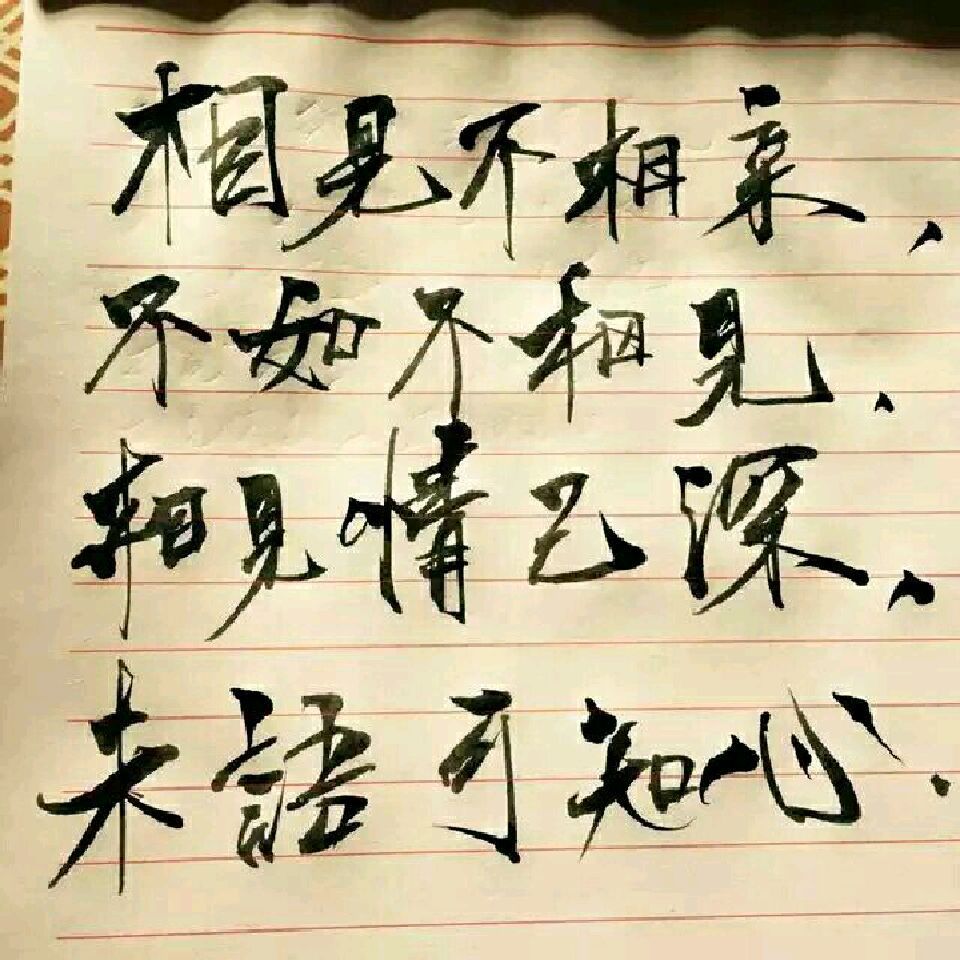 相見不相亲，
不如不相見．
相見情已深，
未語可知心．